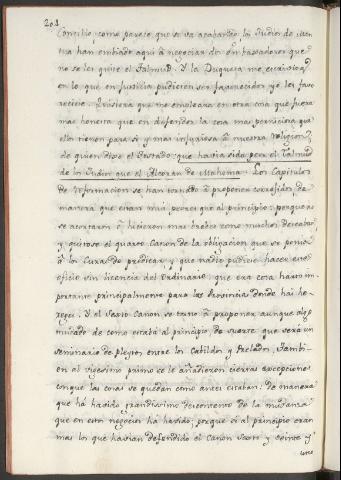 201
Concilio, como parece que se va acabando, los Judios de Man
tua han embiado aqui à negociar dos Embaxadores que
no se les quite el Talmud. Y la Duquesa me escrivio à mi
en lo que en justicia pudiesen ser favorecidos yo les favo
reciese. Quisiera que me empleara en otra cosa que fuera
mas honesta que en defender la cosa mas perniciosa que
ellos tienen para si y mas injuriosa à nuestra religion,
de quien dixo el Tostado que havia sido peor el Talmud
de los Judios que el Alcoran de Mahoma. Los Capitulos
de Reformacion se han tornado à proponer corregidos de
manera que estan mui peores que al principio; porque ò
se acortaron ò hicieron mas brebes como muchos deseaban
y quitose el quarto Canon de la obligacion que se ponia
à los Curas de predicar, y que nadie pudiese hacer este
oficio sin licencia del Ordinario, que era cosa harto im
portante principalmente para las Provincias donde hai he-
reges. Y el Sexto Canon se tornò à proponer, aunque algo
mudado de como estaba al principio de suerte que serà un
seminario de pleytos entre los Cabildos y Prelados. Tambi-
en al vigesimo primo se le añadieron ciertas excepciones
conque las cosas se quedan como antes estaban: de manera
que ha havido grandissimo descontento de la mudanza
que en estos negocios ha havido; porque si al principio eran
mas los que havian defendido el Canon Sexto y veinte y
uno